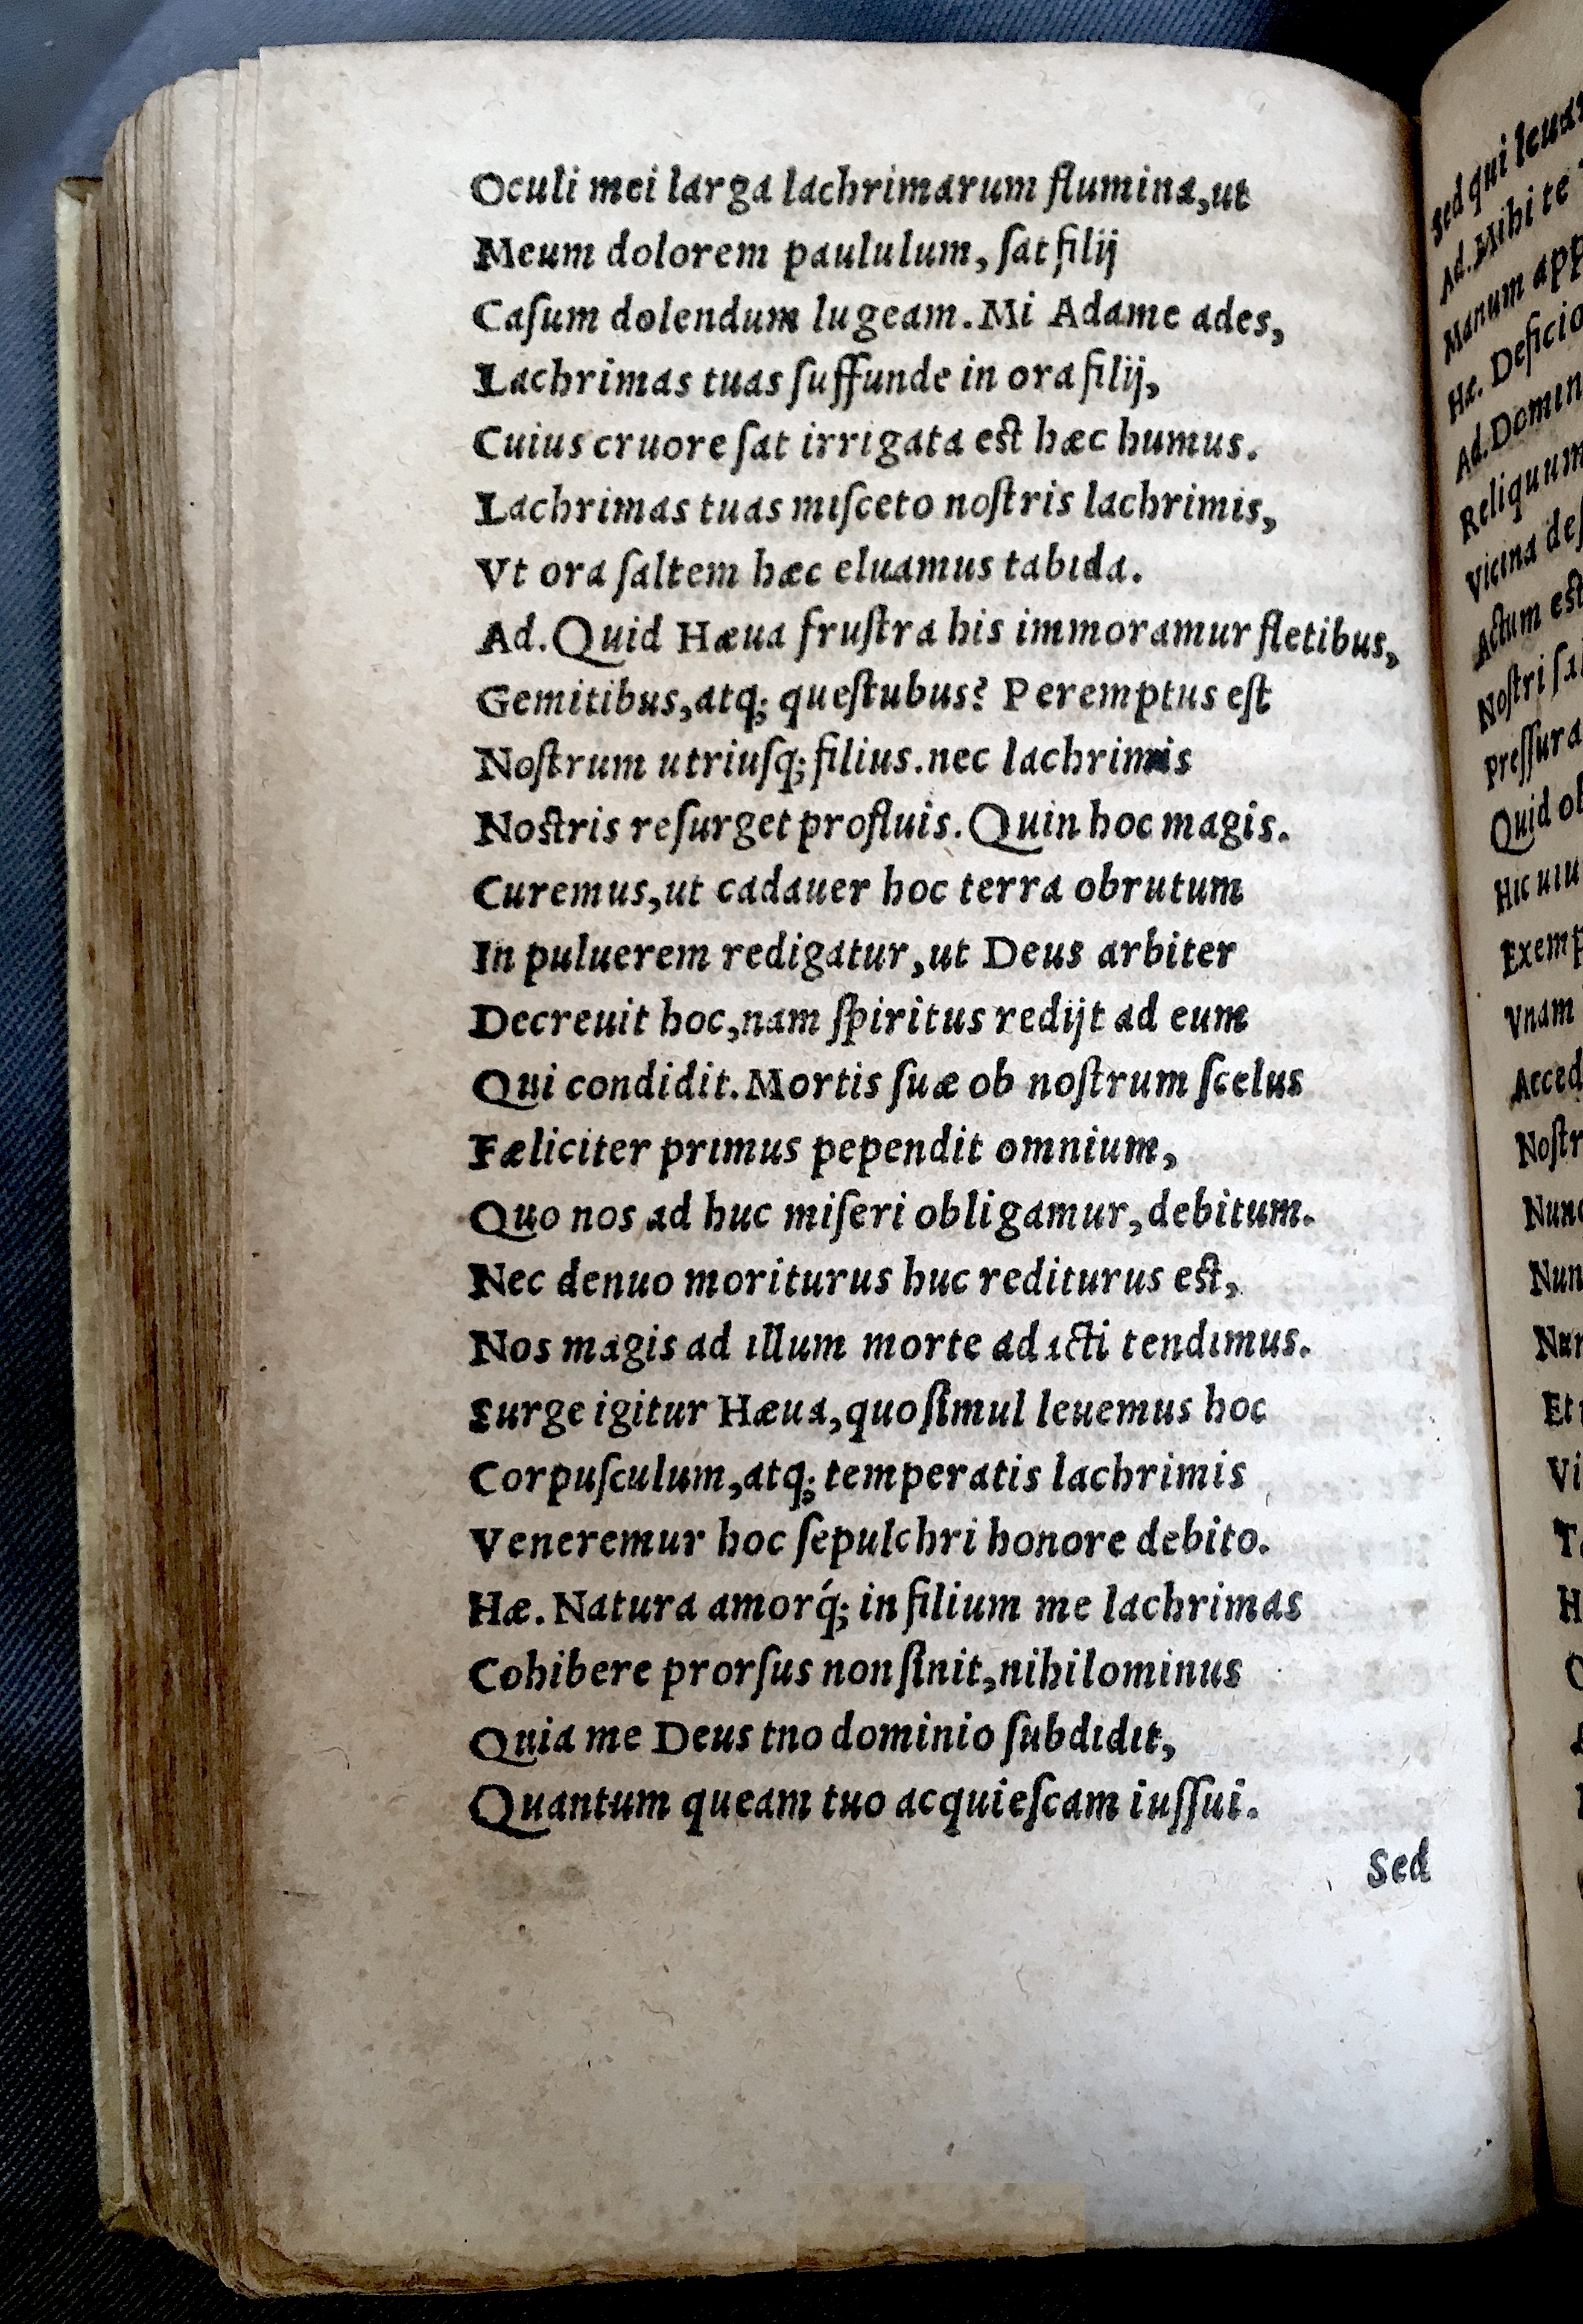 Oculi mei larga lachrimarum flumina,ut
Meum dolorem paululum, ſat filij
Caſum dolendum lugeam. Mi Adame ades,
Lachrimas tuas ſuffunde in ora filij,
Cuius cruore ſat irrigata eſt hæc humus.
Lachrimas tuas miſceto noſtris lachrimis,
Vt ora ſaltem hæc eluamus tabida.
Ad. Quid Hæua fruſtra his immoramur fletibus,
Gemitibus,atq; queſtubus? Peremptus eſt
Noſtrum utriuſq; filius. nec lachrimis
Noſtris reſurget profluis. Quin hoc magis.
Curemus,ut cadauer hoc terra obrutum
In puluerem redigatur,ut Deus arbiter
Decreuit hoc,nam ſpiritus redijt ad eum
Qui condidit. Mortis ſuæ ob noſtrum ſcelus
Fæliciter primus pependit omnium,
Quo nos ad huc miſeri obligamur,debitum.
Nec denuo moriturus huc rediturus eſt,
Nos magis ad illum morte adicti tendimus.
Surge igitur Hæua,quo ſimul leuemus hoc
Corpuſculum,atq; temperatis lachrimis
Veneremur hoc ſepulchri honore debito.
Hæ. Natura amorq́; in filium me lachrimas
Cohibere prorſus non ſinit,nihilominus
Quia me Deus tno dominio ſubdidit,
Quantum queam tuo acquieſcam iuſſui.
Sed
Sed qui
Ad. Mihi te
Manum
Hæ. Deficio
Ad. Domin
Reliquum
Vicina
Actum eſt
Noſtri
Preſſura
Quid
Hic
Exemp
Vnam
Acced
Noſtr
Nunc
Nun
Et